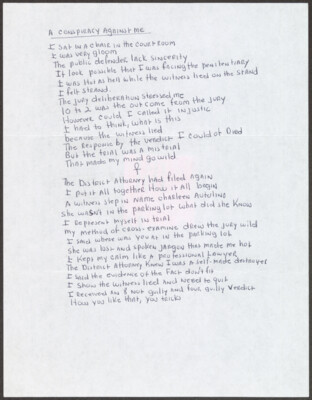 A CONSPIRACY AGAINST ME
I SAT IN A CHAIR IN THE COURT ROOM
I was very gloom
The public defender lack sincerity
It look possible that I was facing the penitentiary
I was Hot As hell while the witness lied on the stand
I felt strand
The jury deliberation stressed me
10 to 2 was the outcome from the jury
However could I called it injustic
I had to think, what is this
because the witness lied
The Response by the verdict I could of Died
But the trial was a mistrial
That made my mind go wild
The District Attorney had filed again
I put it all together How it all begin
A witness step in Name charleen
She wasn't in the parking lot what did she know
I Represent myself in trial
my method of cross-examine drew the jury wild
I said where was you at in the parking lot
she was lost and spoken jargon that made me hot
I Keps my calm like a professional Lawyer
The District Attorney Knew I was a self-made destroyer
I said the evidence of the Fact don't fit
I show the witness lied and need to quit
I received 8 not guilty and two guilty Verdict
How you like that, you tricks